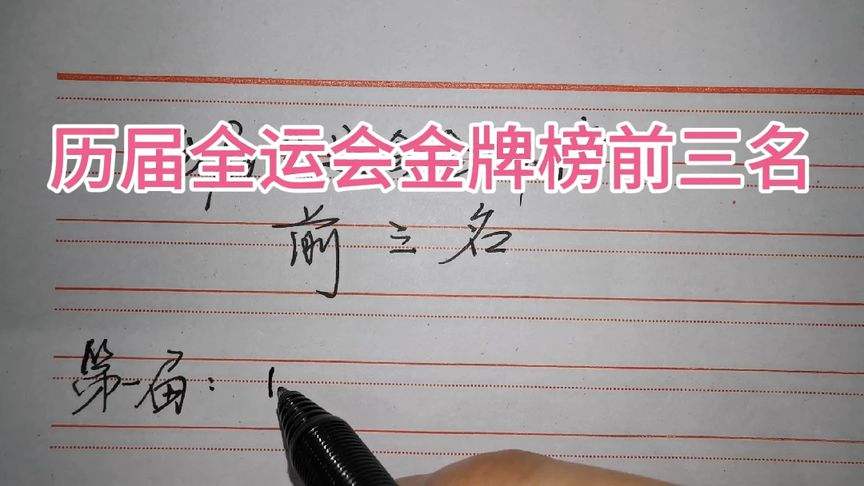 历届全运会金牌榜前三名
前三名
第一届: